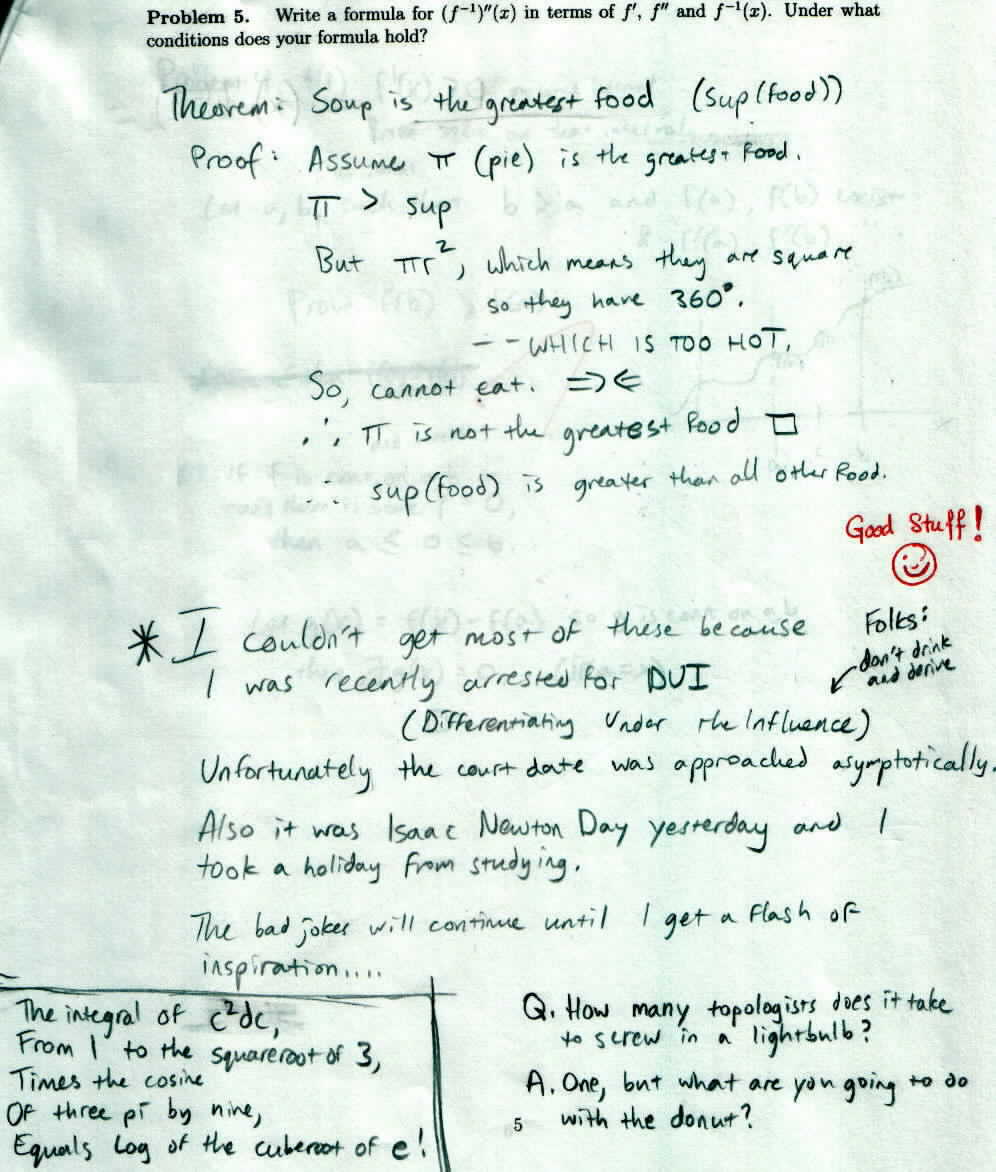 Problem 5. Write a formula for (f⁻¹)″(x) in terms of f′, f″ and f⁻¹(x). Under what
conditions does your formula hold?
Theorem: Soup is the greatest food (sup(food))
Proof: Assume π (pie) is the greatest food.
π > sup
But πr², which means they are square
so they have 360°.
-- WHICH IS TOO HOT.
So, cannot eat. ⇒⇐
∴ π is not the greatest food □
∴ sup(food) is greater than all other food.
Good Stuff!
* I couldn't get most of these because
I was recently arrested for DUI
(Differentiating Under the Influence)
Folks:
don't drink
and derive
Unfortunately the court date was approached asymptotically.
Also it was Isaac Newton Day yesterday and I
took a holiday from studying.
The bad jokes will continue until I get a flash of
inspiration....
The integral of c²dc,
From 1 to the squareroot of 3,
Times the cosine
Of three pi by nine,
Equals log of the cuberoot of e!
Q. How many topologists does it take
to screw in a lightbulb?
A. One, but what are you going to do
with the donut?
5